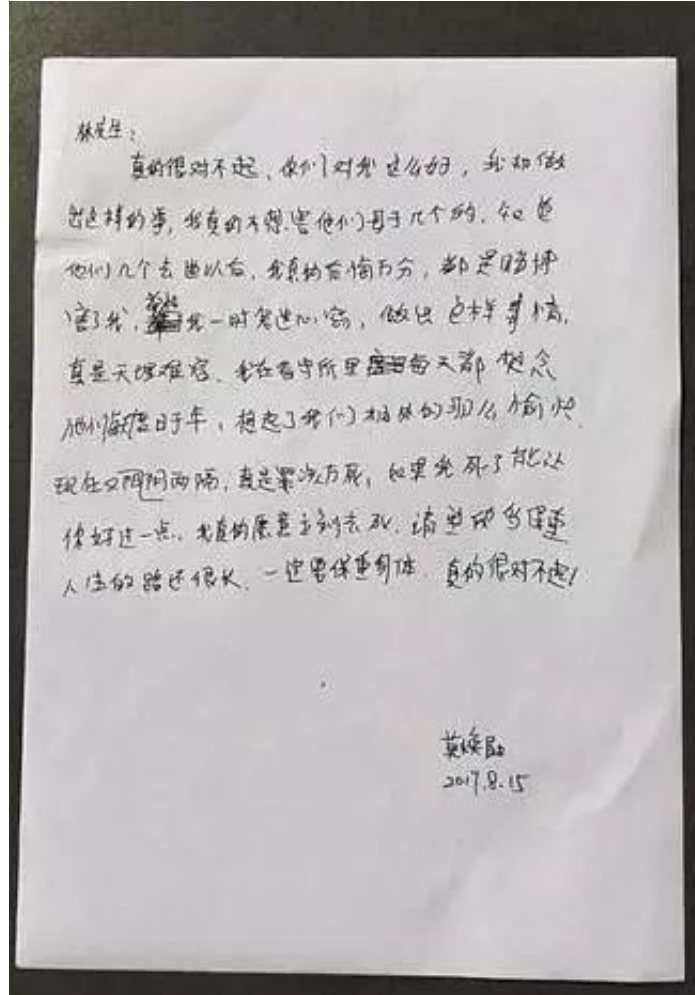 林先生：
真的很对不起、你们对我这么好，我却做
出这样的事，我真的不想害他们母子几个的，知道
他们几个去世以后，我真的后悔万分，都是赌博
害了我，我一时鬼迷心窍，做出这样事情，
真是天理难容、我在看守所里每天都想念
他们度日于年，想起了我们相处的那么愉快，
现在又阴阳两隔，真是罪该万死，如果我死了能让
你好过一点、我真的愿意立刻去死、请
保重
人生的路还很长、一定要保重身体、真的很对不起！
莫焕晶
2017.8.15